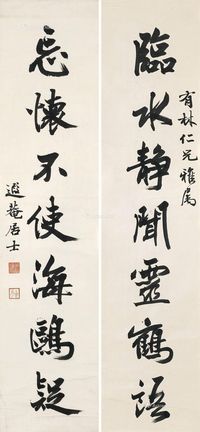 有林仁兄雅属
臨水静聞靈鶴語
忘懷不使海鷗疑
遐菴居士